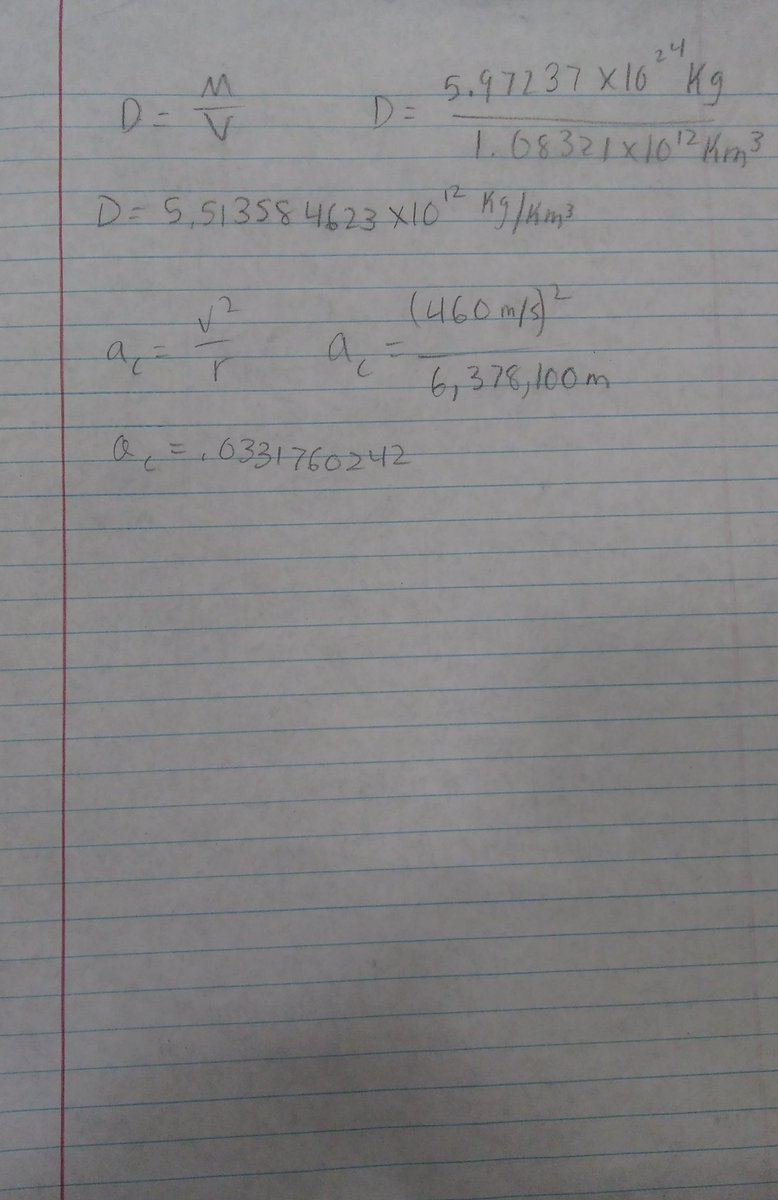 D = M/V D = 5.97237 x10^24 Kg / 1.08321 x10^12 Km^3
D = 5.513584623 x10^12 Kg/Km^3
a_c = v^2/r a_c = (460 m/s)^2 / 6,378,100 m
a_c = .0331760242